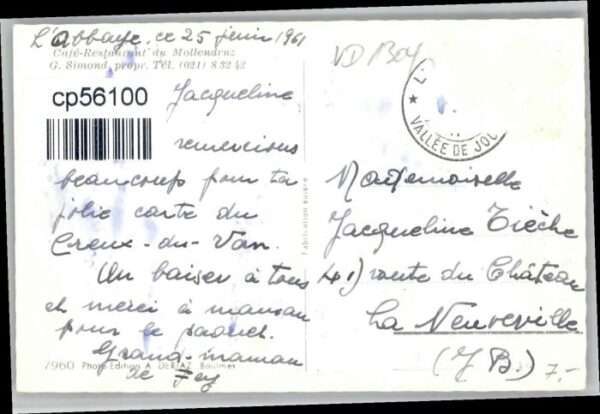 L'Abbaye, ce 25 juin 1961
Café-Restaurant du Mollendruz
G. Simond, propr. Tél. (021) 8 32 42
cp56100
Jacqueline
remercions
beaucoup pour ta
jolie carte du
Creux-du-Van.
Un baiser à tous
et merci à maman
pour le paquet.
Grand-maman
de
7960 Photo-Edition A. DERIAZ Baulmes
Fabrication suisse
VD
VALLÉE DE JOU
Mademoiselle
Jacqueline Tièche
41) route du Château
La Neuveville
(J B.)
7.-